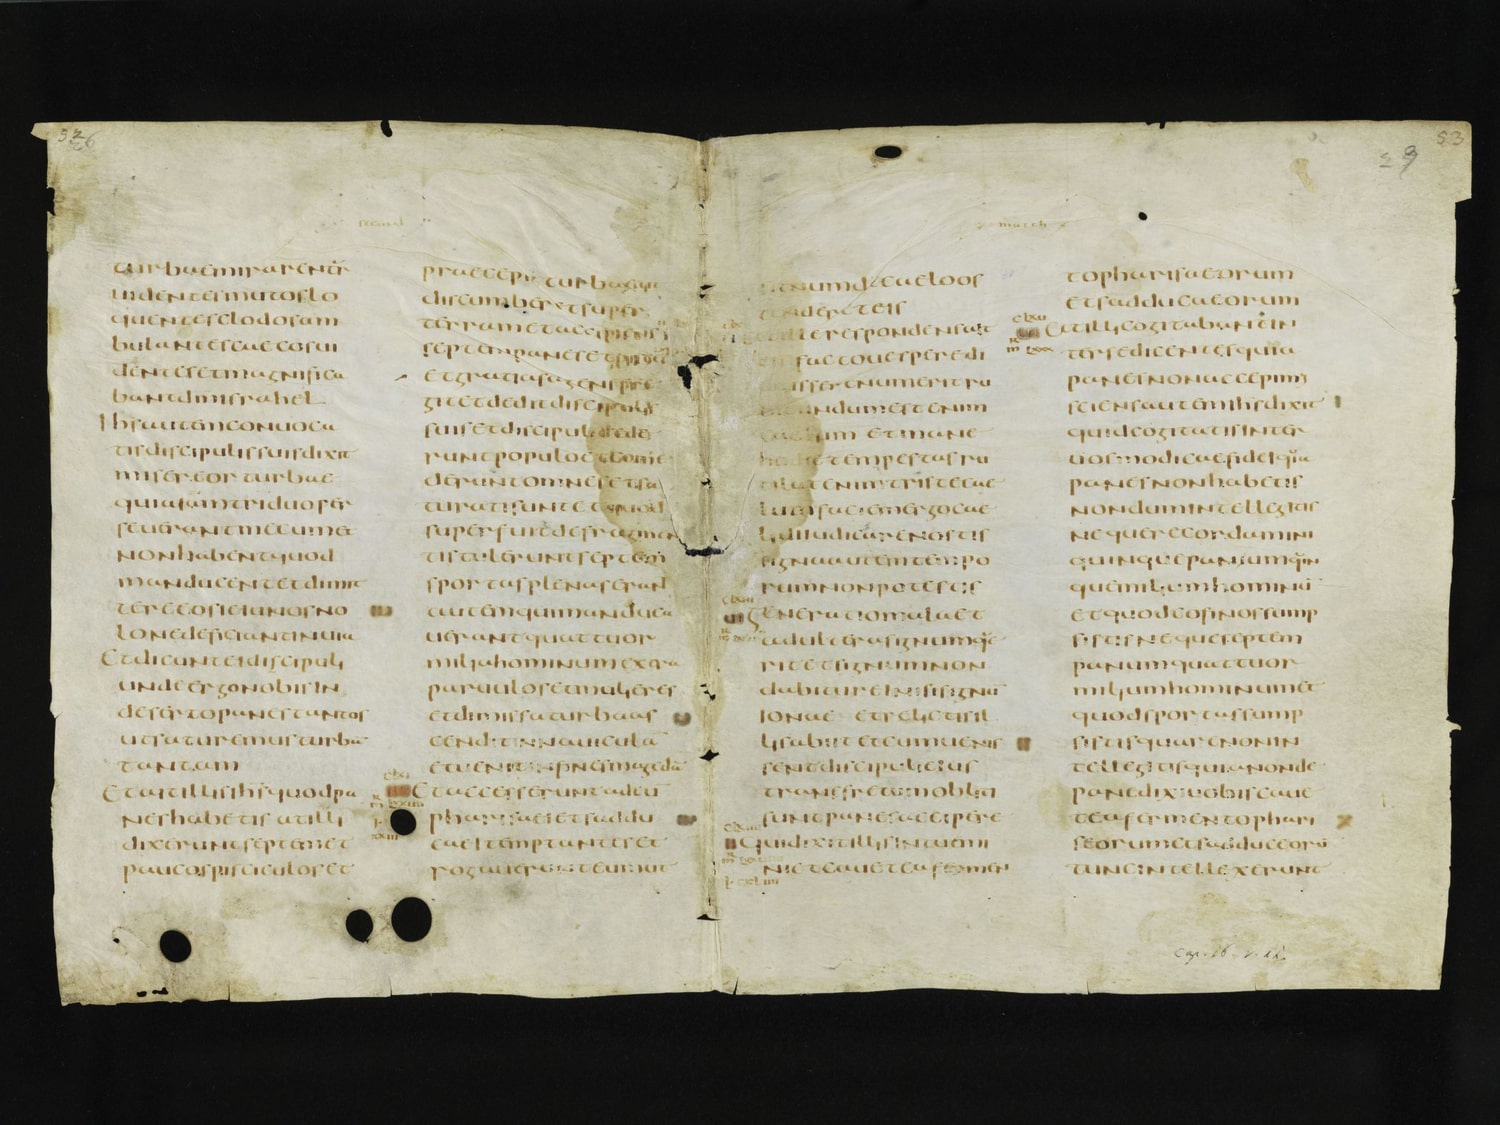 52
26
secund
turbaemirarentr
uidentesmutoslo
quentesclodosam
bulantescaecosui
dentesetmagnifica
bantdmisrahel
Ihsautemconuoca
tisdiscipulissuisdixit
misereorturbae
quiaiamtriduoper
seuerantmecumet
nonhabentquod
manducentetdimit
tereeosieiunosno
lonedeficiantinuia
Etdicunteidiscipuli
undeergonobisin
desertopanestantos
utsaturemusturba
tantam
Etaitillisihsquodpa
neshabetisatilli
dixeruntseptemet
paucospisciculoset
praecepit turbaeut
discumberetsuper
terrametaccipiens
septempaneset
etgratiasagensfre
gitetdeditdiscipulis
suisetdiscipulidede
runtpopuloetcome
deruntomnesetsa
turatisuntetquod
superfuitdefragmen
tistuleruntseptem
sportasplenaserant
autemquimanduca
uerantquattuor
miliahominumextra
paruulosetmulieres
etdimissaturbaas
cenditinnauicula
etuenitinfinesmageda
clxi
Etaccesseruntadeu
pharisaeietsaddu
caeitemptanteset
rogauerunteumut
29
53
matth
signumdecaeloos
tendereteis
atillerespondensait
eisfactouesperedi
citisserenumeritru
bicundumestenim
caelum etmane
hodietempestasru
tilatenimtristecae
lumfaciemergocae
lidiiudicarenostis
signaautemtempo
rumnonpotestis
clxii
Generatiomalaet
adulterasignumque
ritetsignumnon
dabitureinisisigna
ionae etrelictisil
lisabiitetcumuenis
sentdiscipulieius
transfretumobliti
suntpanesaccipere
clxiii
Quidixitillisintuemi
nietcaueteafermen
topharisaeorum
etsadducaeorum
Atillicogitabantin
tersedicentesquia
panesnonaccepim
sciensautemihsdixit
quidcogitatisinter
uosmodicaefideiqia
panesnonhabetis
nondumintellegitis
nequerecordamini
quinquepanumqin
quemiliumhominu
etquodcofinossump
sistisnequeseptem
panumquattuor
miliumhominumet
quodsportassump
sistisquarenonin
tellegitisquianonde
panedixiuobiscaue
teafermentophari
seorumetsadduceoru
tuncintellexerunt